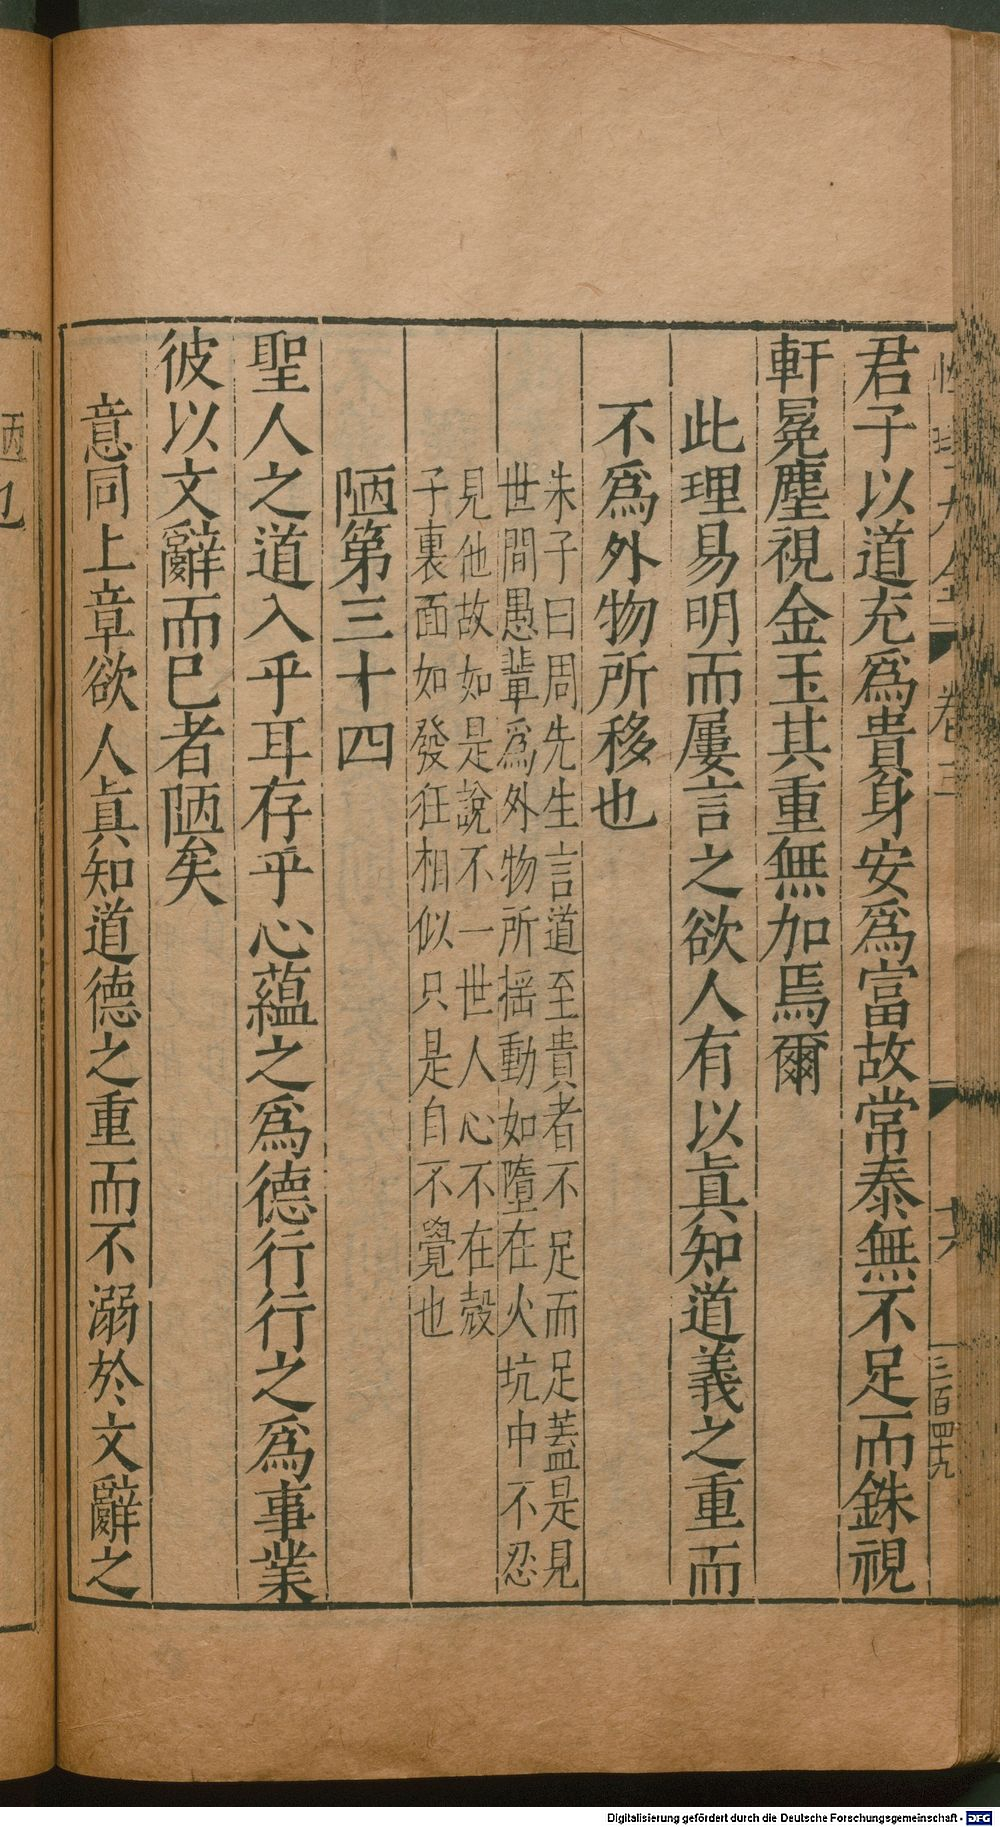 君子以道充爲貴身安爲富故常泰無不足而銖視
軒冕塵視金玉其重無加焉爾
此理易明而屢言之欲人有以眞知道義之重而
不爲外物所移也
朱子曰周先生言道至貴者不足而足蓋是見
世間愚輩爲外物所揺動如墮在火坑中不忍
見他故如是說不一世人心不在殻
子裏面如發狂相似只是自不覺也
陋第三十四
聖人之道入乎耳存乎心蘊之爲德行行之爲事業
彼以文辭而已者陋矣
意同上章欲人眞知道德之重而不溺於文辭之
陋也
卷三
三百四十九
Digitalisierung gefördert durch die Deutsche Forschungsgemeinschaft - DFG